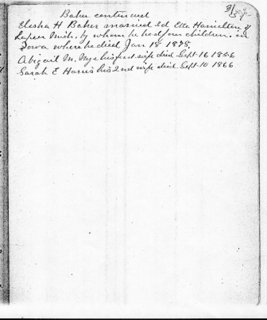 Baker continued
Elisha H Baker married 3d Ella Hamilton of
Lapeer Mich. by whom he had four children. in
Iowa where he died Jan 18 1898.
Abigail M. Nye his first wife died Sept 16 1856
Sarah E Harris his 2nd wife died Sept 10 1866